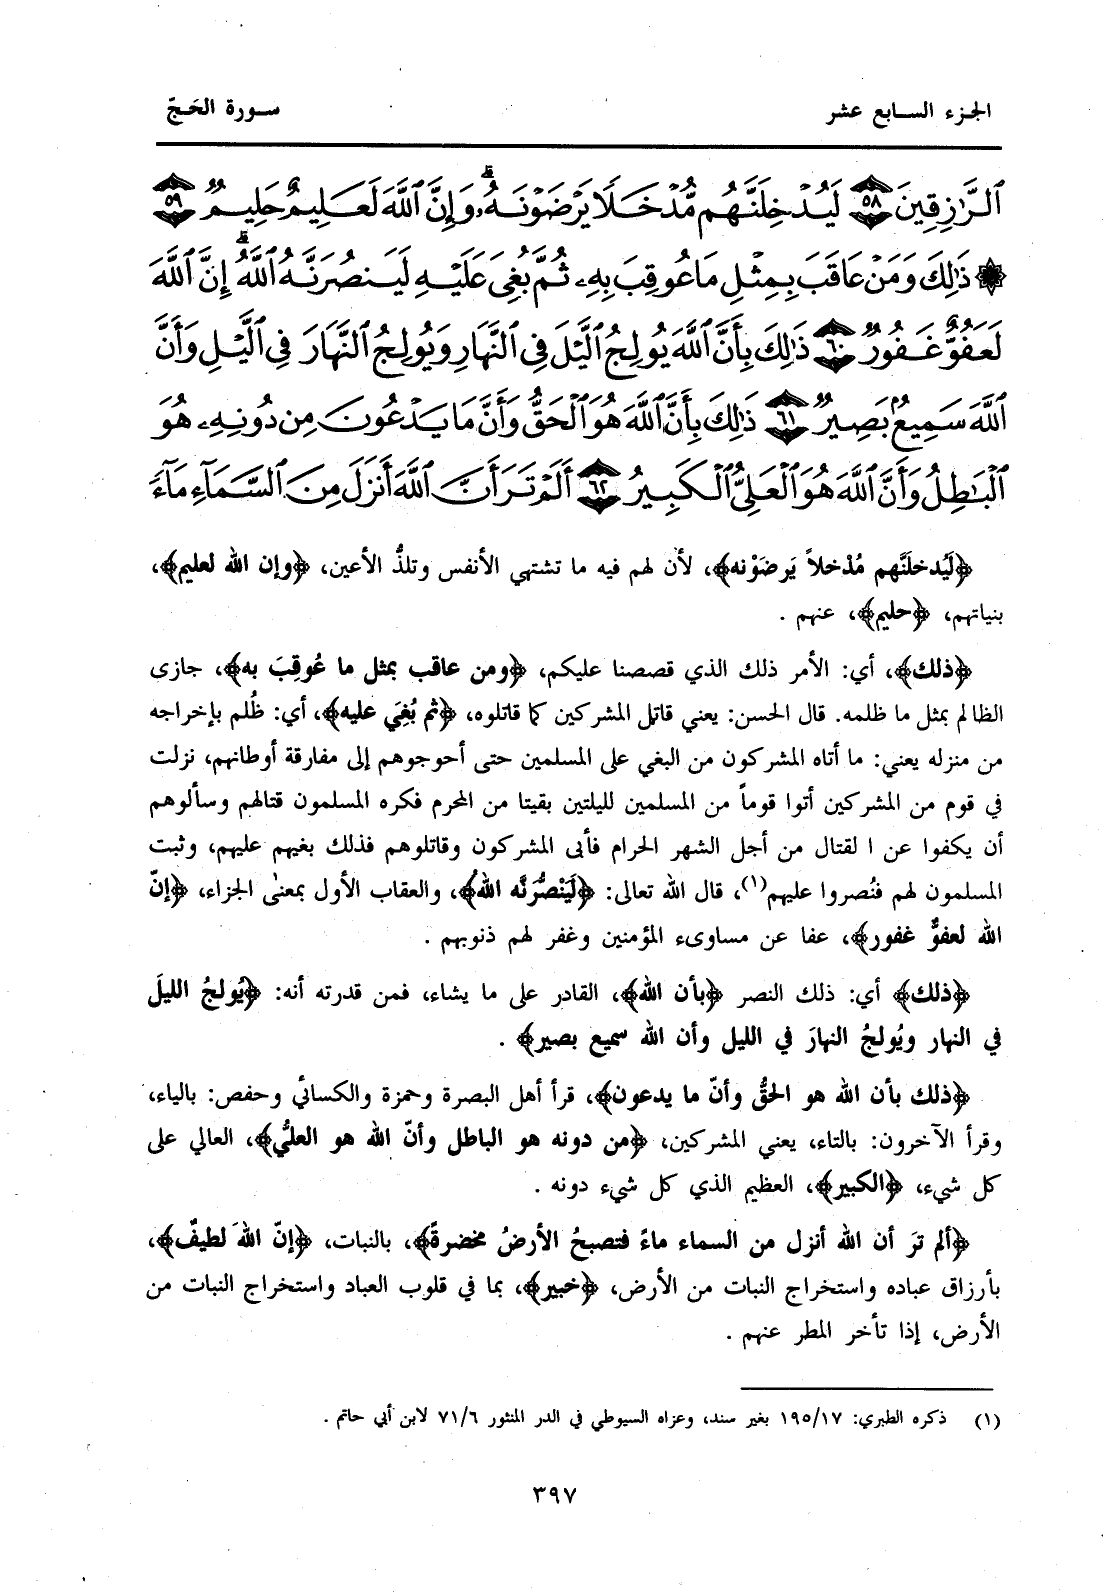 الجزء السابع عشر
سورة الحَجّ
ٱلرَّٰزِقِينَ ٥٨ لَيُدْخِلَنَّهُم مُّدْخَلًا يَرْضَوْنَهُۥ ۗ وَإِنَّ ٱللَّهَ لَعَلِيمٌ حَلِيمٌ ٥٩
۞ ذَٰلِكَ وَمَنْ عَاقَبَ بِمِثْلِ مَا عُوقِبَ بِهِۦ ثُمَّ بُغِىَ عَلَيْهِ لَيَنصُرَنَّهُ ٱللَّهُ ۗ إِنَّ ٱللَّهَ
لَعَفُوٌّ غَفُورٌ ٦٠ ذَٰلِكَ بِأَنَّ ٱللَّهَ يُولِجُ ٱلَّيْلَ فِى ٱلنَّهَارِ وَيُولِجُ ٱلنَّهَارَ فِى ٱلَّيْلِ وَأَنَّ
ٱللَّهَ سَمِيعٌۢ بَصِيرٌ ٦١ ذَٰلِكَ بِأَنَّ ٱللَّهَ هُوَ ٱلْحَقُّ وَأَنَّ مَا يَدْعُونَ مِن دُونِهِۦ هُوَ
ٱلْبَٰطِلُ وَأَنَّ ٱللَّهَ هُوَ ٱلْعَلِىُّ ٱلْكَبِيرُ ٦٢ أَلَمْ تَرَ أَنَّ ٱللَّهَ أَنزَلَ مِنَ ٱلسَّمَآءِ مَآءً
﴿لَيُدخلَنَّهم مُدْخلاً يَرضَوْنه﴾، لأن لهم فيه ما تشتهي الأنفس وتلذُّ الأعين، ﴿وإن الله لعليم﴾،
بنياتهم، ﴿حليم﴾، عنهم .
﴿ذلك﴾، أي: الأمر ذلك الذي قصصنا عليكم، ﴿ومن عاقب بمثل ما عُوقِبَ به﴾، جازى
الظالم بمثل ما ظلمه. قال الحسن: يعني قاتل المشركين كما قاتلوه، ﴿ثم بُغِيَ عليه﴾، أي: ظُلم بإخراجه
من منزله يعني: ما أتاه المشركون من البغي على المسلمين حتى أحوجوهم إلى مفارقة أوطانهم، نزلت
في قوم من المشركين أتوا قوماً من المسلمين لليلتين بقيتا من المحرم فكره المسلمون قتالهم وسألوهم
أن يكفوا عن ا لقتال من أجل الشهر الحرام فأبى المشركون وقاتلوهم فذلك بغيهم عليهم، وثبت
المسلمون لهم فنُصروا عليهم(١)، قال الله تعالى: ﴿لَيَنْصُرَنَّه الله﴾، والعقاب الأول بمعنى الجزاء، ﴿إنّ
الله لعفوٌّ غفور﴾، عفا عن مساوىء المؤمنين وغفر لهم ذنوبهم .
﴿ذلك﴾ أي: ذلك النصر ﴿بأن الله﴾، القادر على ما يشاء، فمن قدرته أنه: ﴿يُولجُ الليلَ
في النهار ويُولجُ النهارَ في الليل وأن الله سميع بصير﴾ .
﴿ذلك بأن الله هو الحقُّ وأنّ ما يدعون﴾، قرأ أهل البصرة وحمزة والكسائي وحفص: بالياء،
وقرأ الآخرون: بالتاء، يعني المشركين، ﴿من دونه هو الباطل وأنّ الله هو العليُّ﴾، العالي على
كل شيء، ﴿الكبير﴾، العظيم الذي كل شيء دونه .
﴿ألم ترَ أن الله أنزل من السماء ماءً فتصبحُ الأرضُ مخضرةً﴾، بالنبات، ﴿إنّ اللهَ لطيفٌ﴾،
بأرزاق عباده واستخراج النبات من الأرض، ﴿خبير﴾، بما في قلوب العباد واستخراج النبات من
الأرض، إذا تأخر المطر عنهم .
(١) ذكره الطبري: ١٩٥/١٧ بغير سند، وعزاه السيوطي في الدر المنثور ٧١/٦ لابن أبي حاتم .
٣٩٧